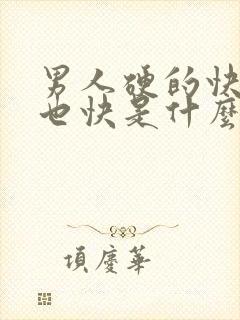 男人硬的快
也快是什麼
項慶華